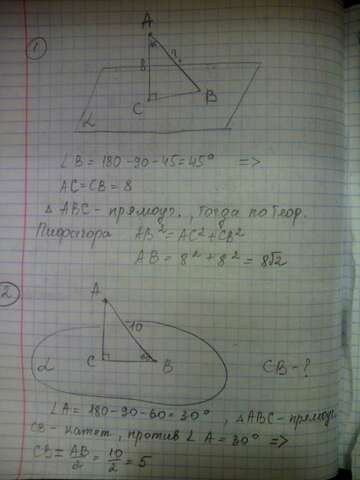 1
A
45
8
?
C
B
α
∠B = 180 - 90 - 45 = 45° =>
AC = CB = 8
△ ABC - прямоуг., тогда по теор.
Пифагора AB² = AC² + CB²
AB = 8² + 8² = 8√2
2
A
10
C
60
B
α
CB - ?
∠A = 180 - 90 - 60 = 30°, △ABC - прямоуг.
CB - катет, против ∠A = 30° =>
CB = AB/2 = 10/2 = 5